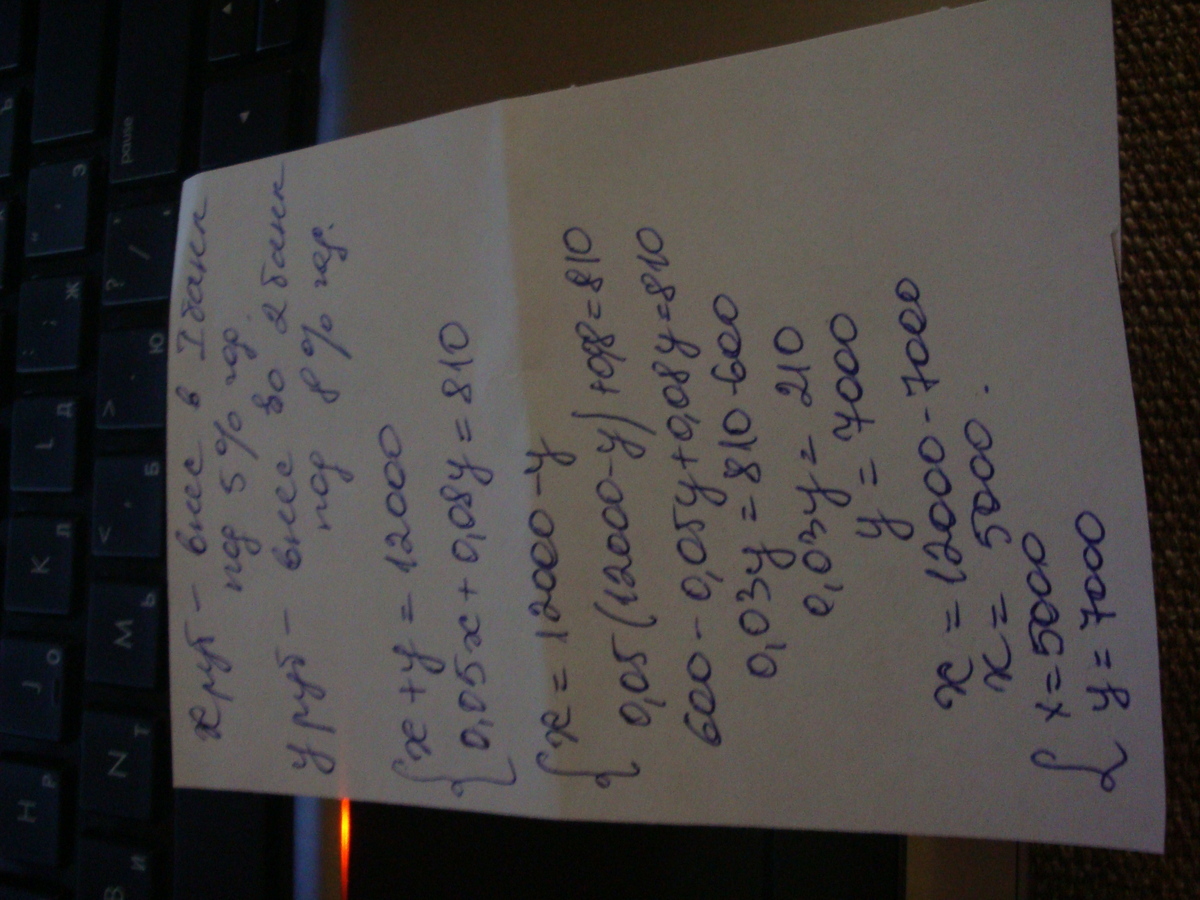 x руб - внес в I банк
под 5% год.
у руб - внес во 2 банк
под 8% год.
{ x + y = 12000
0,05x + 0,08y = 810
{ x = 12000 - y
0,05(12000-y) + 0,8=810
600 - 0,05y + 0,08y = 810
0,03y = 810-600
0,03y = 210
y = 7000
x = 12000 - 7000
x = 5000.
{ x = 5000
y = 7000
pause
Э
Ж
? /
:
;
L Д
> . Ю
K Л
< , Б
J О
M Ь
H Р
N Т
B И